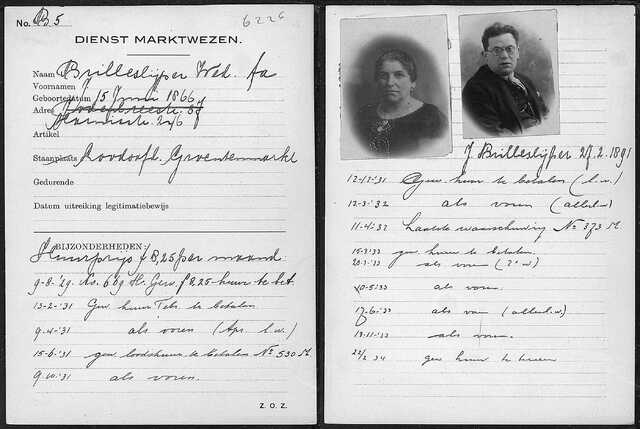 No. B 5
6226
DIENST MARKTWEZEN.
Naam Brilleslijper Wed. fa
Voornamen
Geboortedatum 15 Juni 1866
Adres Jodenbreestr. 37
246
Artikel
Staanplaats Noodloods Groentenmarkt
Gedurende
Datum uitreiking legitimatiebewijs
BIJZONDERHEDEN:
Huurprijs f 8,25 per maand
9-8-'29. No. 629 M. Gew. f 8,25 huur te bet.
13-2-'31 Gew. huur Febr. te betalen
9-4-'31 als voren (Apr. l.w.)
15-6-'31 gew. loodshuur te betalen No 530 M
9-10-'31 als voren.
Z. O. Z.
J. Brilleslijper 27.2.1891
12-12-'31 Gew. huur te betalen (l.w.)
12-3-'32 als voren
11-4-'32 Laatste waarschuwing No 373 M
15-3-'33 gew. huur te betalen.
20-3-'33 als voren (2e w)
10-5-'33 als voren.
17-6-'33 als voren
13-11-'33 als voren.
22/2 34 gew huur te betalen